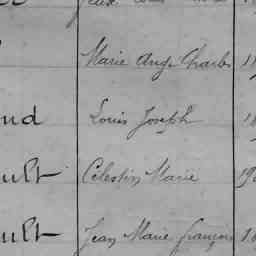 Marie Ange Charles 18
und Louis Joseph 18
ult Célestin Marie 19
ult Jean Marie françois 18